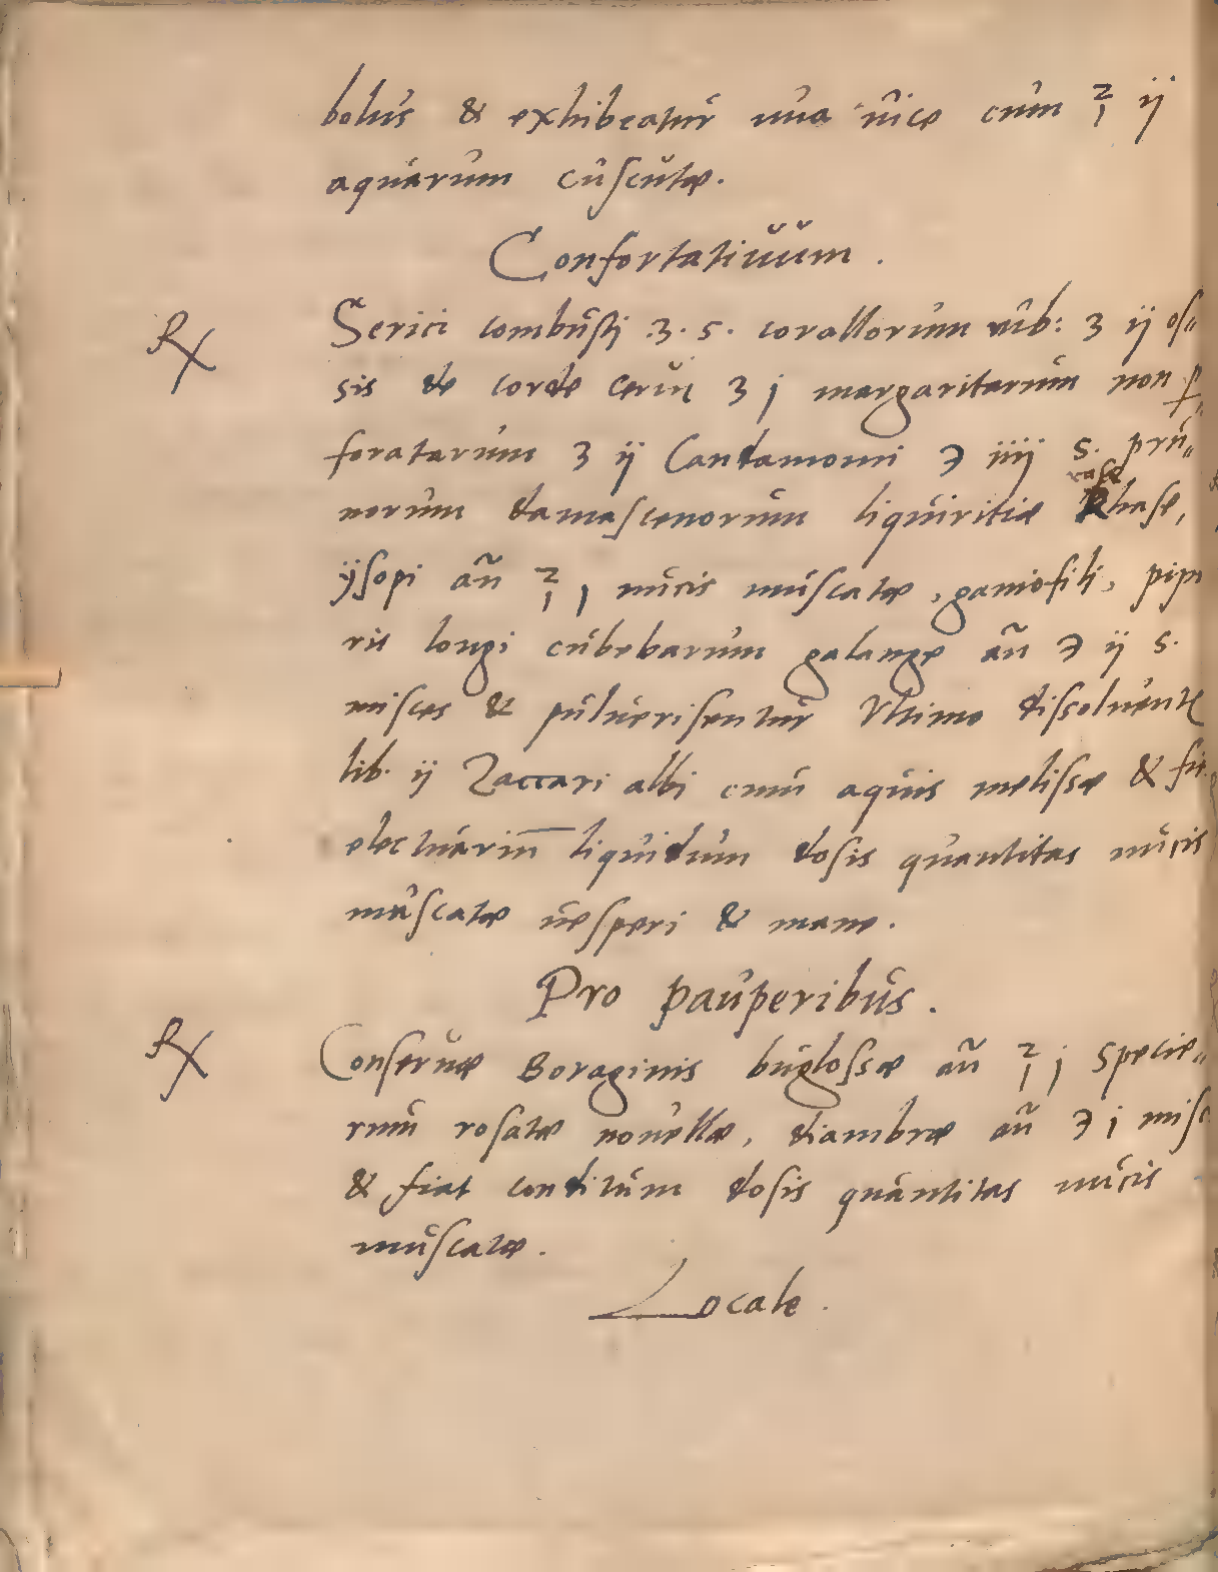 bolus & exhibeatur una uice cum ℥ ij
aquarum cuscutæ.
Confortatiuum.
℞ Serici combusti ʒ. s. corallorum rub: ʒ ij os„
sis de corde cerui ʒ j margaritarum non p„
foratarum ʒ ij Cardamomi ℈ iiij s. pru„
rasæ
norum damascenorum liquiritiæ Rhasæ,
ijsopi añ ℥ j nucis muscatæ, gariofili, pipe
ris longi cubebarum galangæ añ ℈ ij s.
misces & puluerisentur Ultimo dissoluente
lib. ij Zaccari albi cum aquis melissæ & fit
electuariū liquidum dosis quantitas nucis
muscatæ uesperi & mane.
Pro pauperibus.
℞ Conseruæ Boraginis buglossæ añ ℥ j specie„
rum rosatæ nouellæ, diambræ añ ℈ j misc
& fiat conditum dosis quantitas nucis
muscatæ.
Locale.